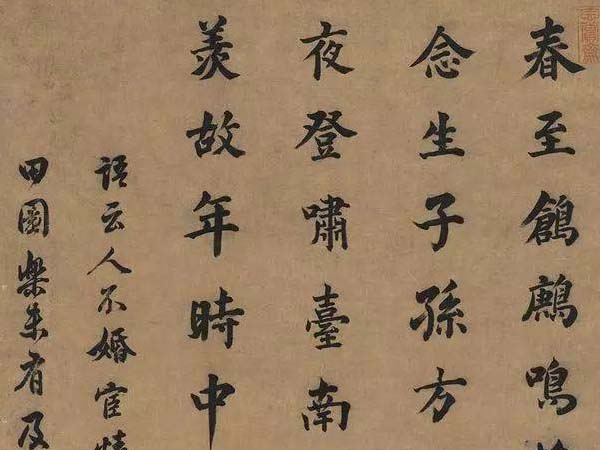 春至鶬鶊鳴
念生子孫方
夜登嘯臺南
羨故年時中
語云人不婚宦情
田園樂未有及